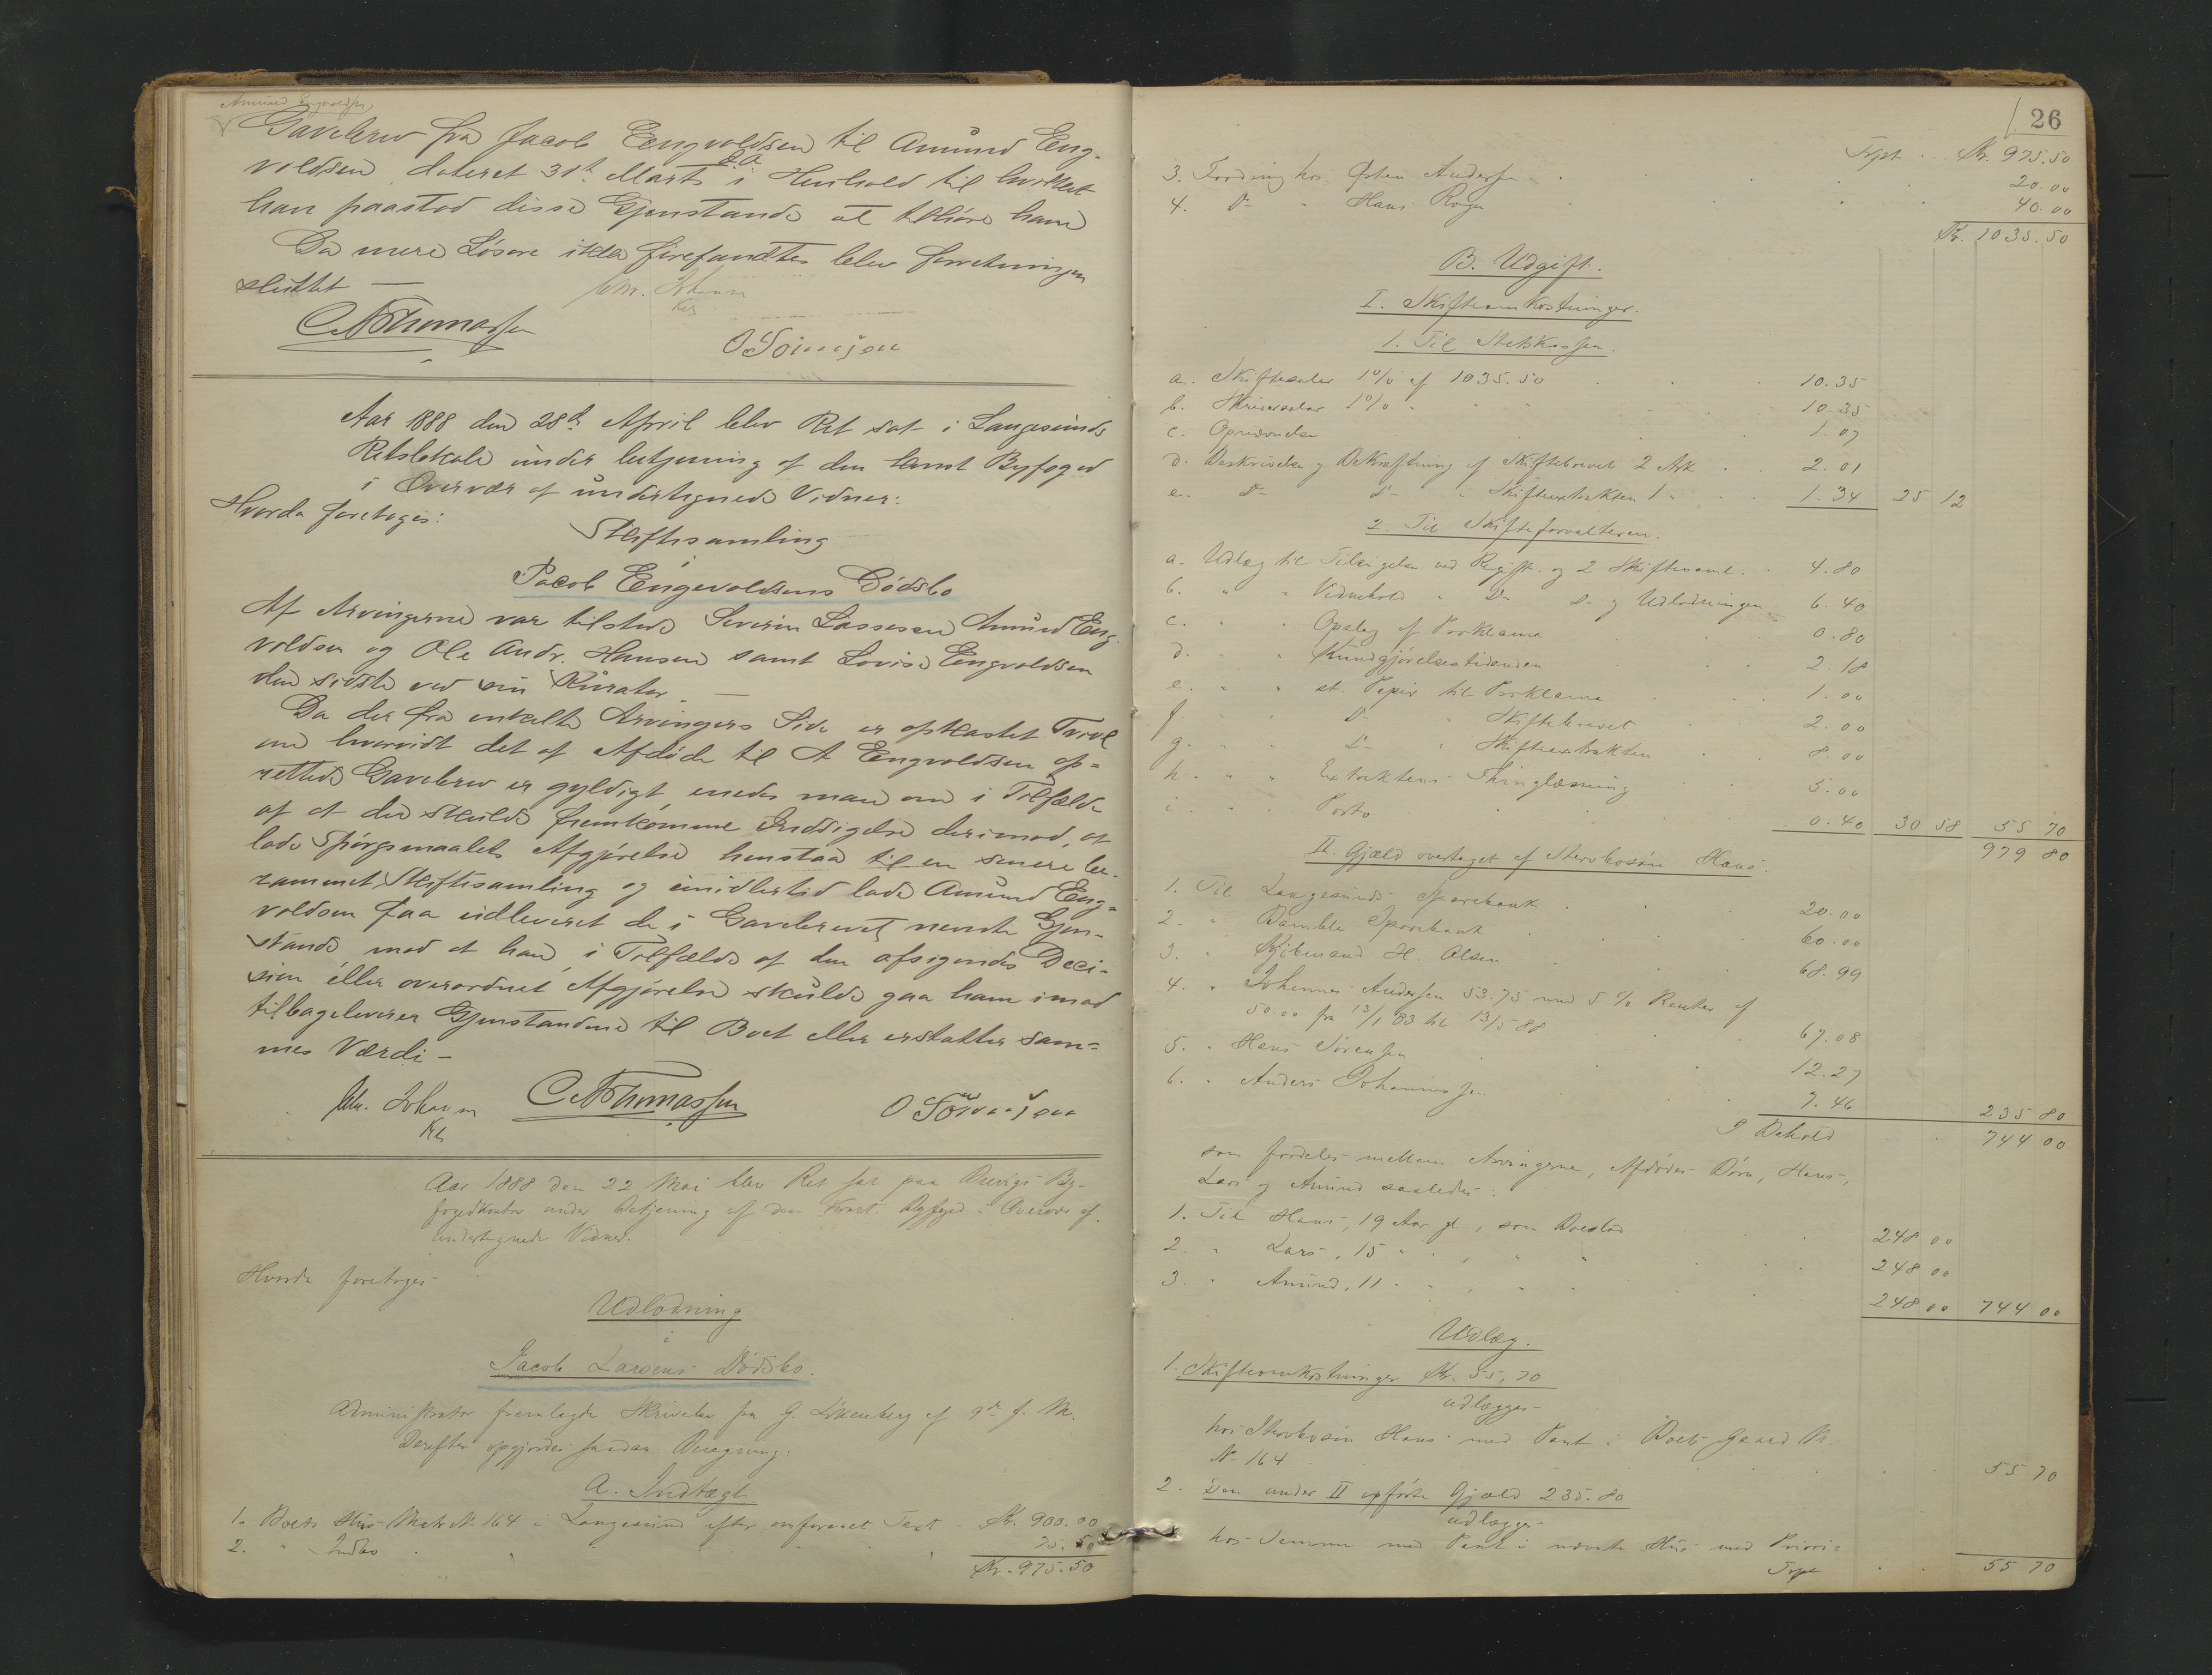 Amund Engvoldsen
Gavebrev fra Jacob Eengvoldsen til Amund Eng-
voldsen dateret 31te Marts d.A. i Henhold til hvilket
han paastod disse Gjenstande at tilhøre ham
Da mere Løsøre ikke forefandtes blev forretningen
sluttet —
Chr. Johnsen
C A Thomassen
O Sörensen
Aar 1888 den 28de April blev Ret sat i Langesunds
Retslokale under betjening af den konst Byfoged
i Overvær af undertegnede Vidner:
Hvorda foretoges:
Skiftesamling
i
Jacob Eengevoldsens Dödsbo
Af Arvingerne var tilstede Severin Lassesen Amund Eng-
voldsen og Ole Andr. Hansen samt Lovise Eengvoldsen
den sidste ved sin Kurator —
Da der fra enkelte Arvingers Side er opkastet Tvivl
om hvorvidt det af Afdöde til A Eengvoldsen op-
rettede Gavebrev er gyldigt enedes man om i Tilfælde
af at der skulde fremkomme Indsigelse derimod, at
lade Spörgsmaalets Afgjörelse henstaa til en senere be-
rammet Skiftesamling og imidlertid lade Amund Eng-
voldsen faa udleveret de i Gavebrevet nevnte Gjen-
stande mod at han i Tilfælde af den afsigendes Deci-
sion eller overordnet Afgjörelse skulde gaa ham imod
tilbageleverer Gjenstandene til Boet eller erstatter sam-
mes Værdi —
Chr. Johnsen
C A Thomassen
O Sörensen
Aar 1888 den 22 Mai blev Ret sat paa Brevigs By-
fogedkontor under Betjening af den konst. Byfoged i Overvær af
undertegnede Vidner.
Hvorda foretoges
Udlodning
i
Jacob Larsens Dödsbo.
Administrator fremlagde Skrivelse fra G. af 9de f. M.
Derefter opgjordes saadan Beregning:
A. Indtægt
1. Boets Hus Matr No 164 i Langesund efter omforenet Taxt Kr. 900.00
2. " Indbo 75.50
Kr. 975.50
26
Trpt ... Kr. 975.50
3. Fordring hos Østen Andersen 20.00
4. Do " Hans 40.00
Kr. 1035.50
B. Udgift.
I. Skifteomkostninger.
1. Til Statskassen.
a. Skiftesalær 1% af 1035.50 10.35
b. Skriversalær 1% " 10.35
c. Opnævnelse 1.07
d. Beskrivelse og Bekræftning af Skiftebrevet 2 Ark 2.01
e. Do Do " Skifteextrakten 1 " 1.34 25 12
2. Til Skifteforvalteren.
a. Udlæg til Tilsigelse ved Regist. og 2 Skiftesaml. 4.80
b. " " Vidnehold " Do Do og Udlodningen 6.40
c. " " Opslag af Proklama 0.80
d. " " Kundgjörelsestidenden 2.18
e. " " st. Papir til Proklama 1.00
f " " Do " Skiftebrevet 2.00
g. " " Do " Skifteextrakten 8.00
h. " " Extraktens Thinglæsning 5.00
i " " Porto 0.40 30 58 55 70
979 80
II. Gjæld overtaget af Stervbosön Hans.
1. Til Langesunds Sparebank 20.00
2. " Bamble Sparebank 60.00
3. " Kjöbmand H. Olsen 68.99
4. " Johannes Andersen 53.75 med 5 % Renter af
50.00 fra 13/1 83 til 13/5 88 67.08
5. " Hans Sörensen 12.27
6. " Anders Johannessen 7.46 235 80
I Behold 744 00
som fordeles mellem Arvingerne, Afdödes Börn, Hans,
Lars og Amund saaledes:
1. Til Hans, 19 Aar gl., som Broslod 248 00
2. " Lars, 15 " " , " " 248 00
3. " Amund, 11 " " , " " 248 00 744 00
Udlæg.
1. Skifteomkostninger Kr. 55,70
udlægges
hos Stervbosön Hans med Pant i Boets Gaard M.
No 164 55 70
2. Den under II opförte Gjæld 235.80
udlægges
hos Samme med Pant i nævnte Hus med Priori-
Trpt 55 70